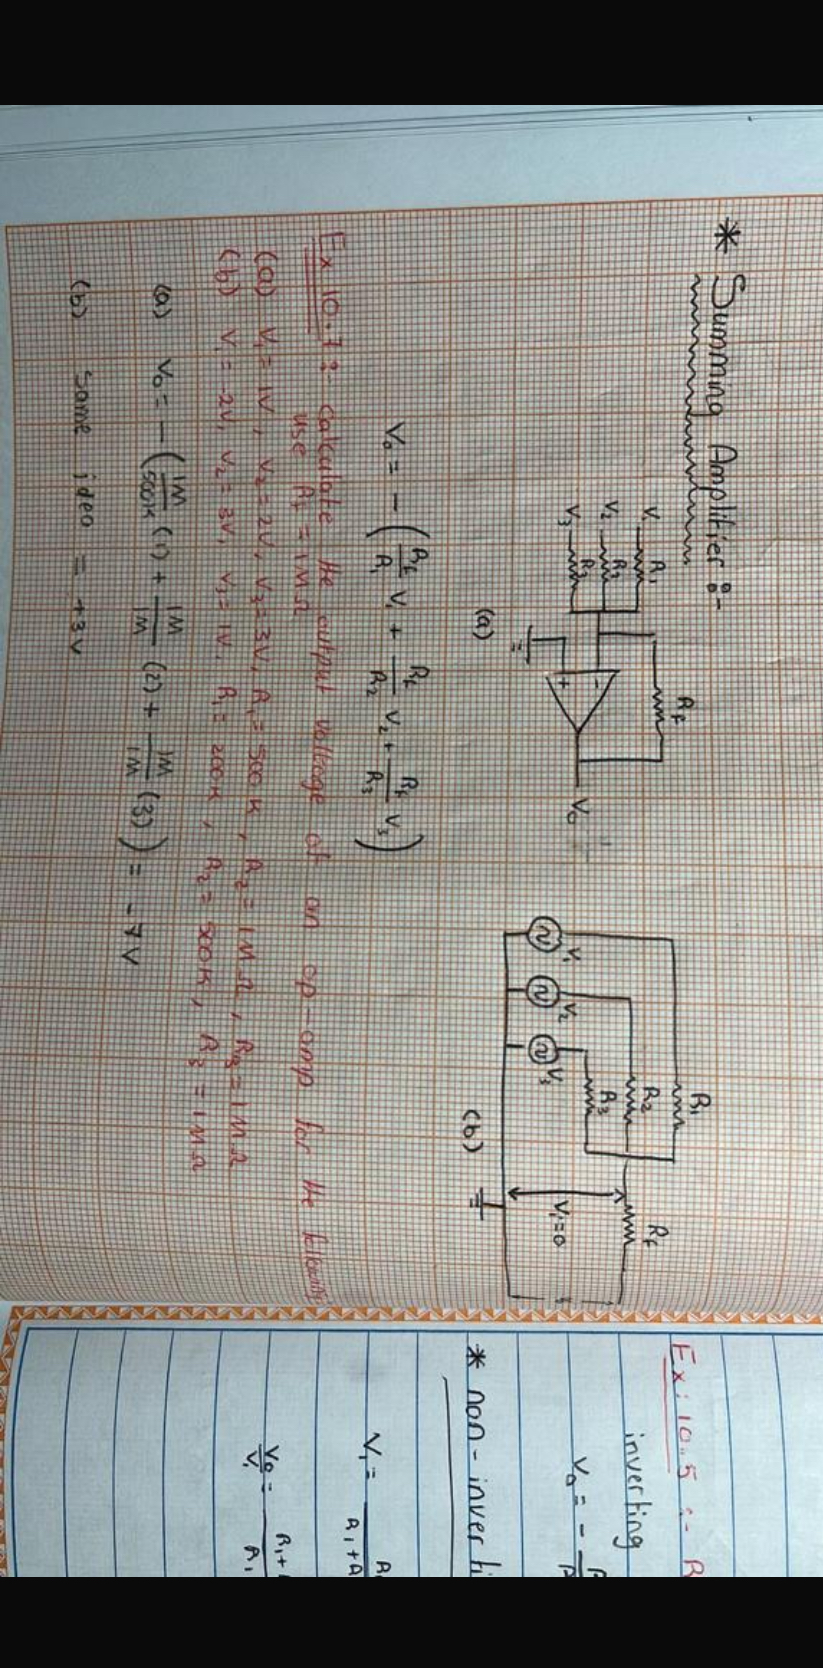 * Summing Amplifier :-
R1
V1
R2
V2
R3
V3
Rf
-
+
Vo
(a)
R1
R2
R3
Rf
V1
V2
V3
V1=0
(b)
Vo = - ( Rf/R1 V1 + Rf/R2 V2 + Rf/R3 V3 )
Ex 10.7 :- Calculate the output voltage of an op-amp for the following
use Rf = 1MΩ
(a) V1 = 1V, V2 = 2V, V3 = 3V, R1 = 500 K, R2 = 1MΩ, R3 = 1MΩ
(b) V1 = -2V, V2 = 3V, V3 = 1V, R1 = 200K, R2 = 500K, R3 = 1MΩ
(a) Vo = - ( 1M/500K (1) + 1M/1M (2) + 1M/1M (3) ) = -7V
(b) same idea = +3V
Ex: 10.5 :-
inverting
Vo = -
* non-inverti
V1 =
R1+R
Vo/V1 = R1+
R1